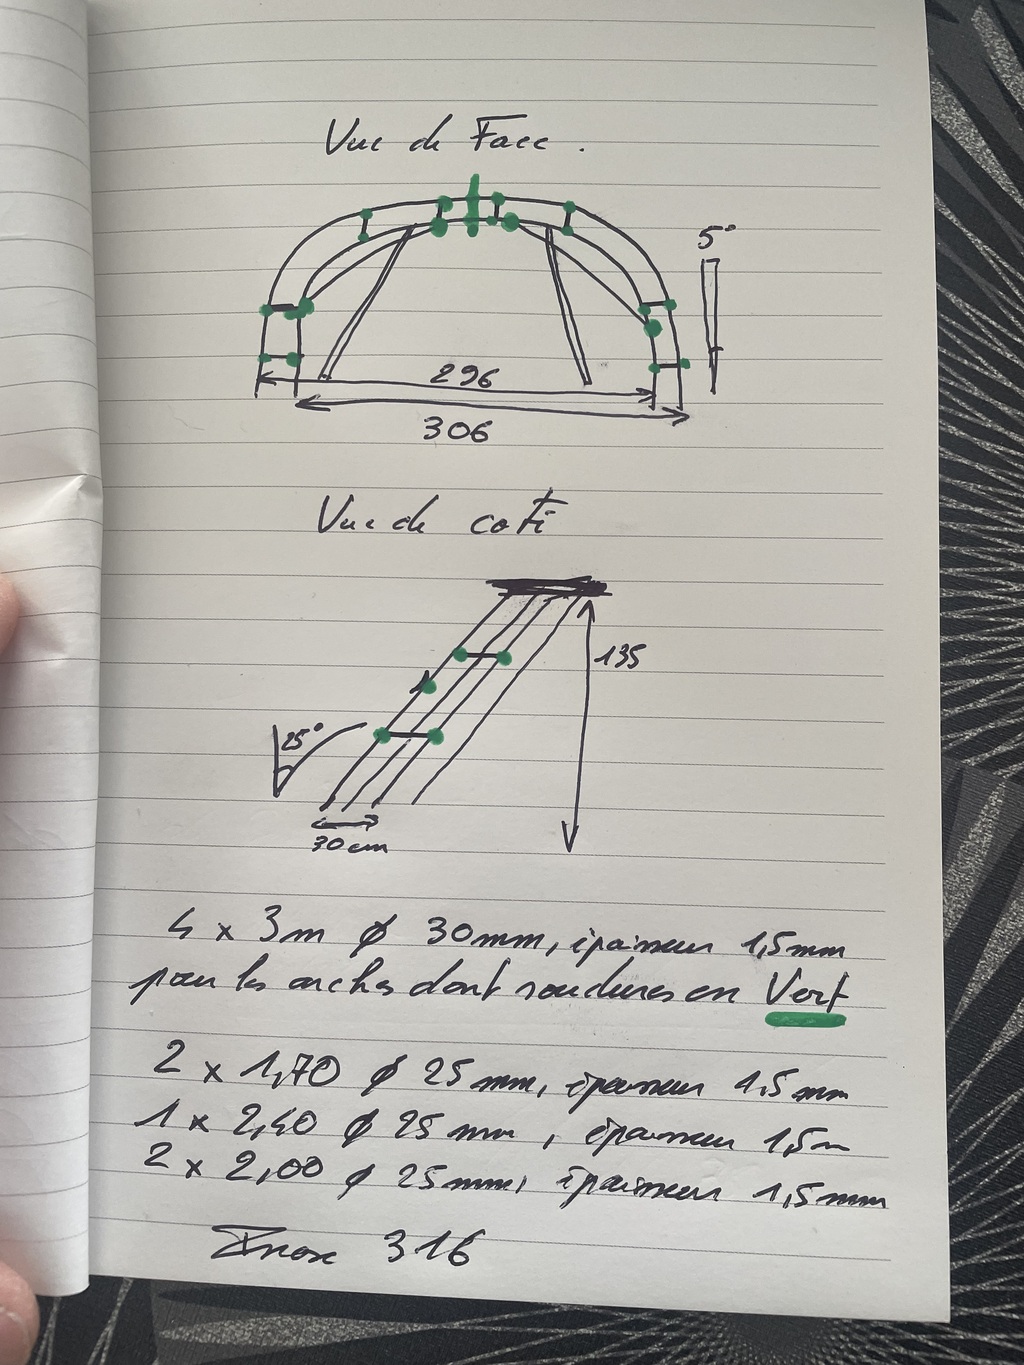 Vue de Face.
5°
296
306
Vue de coté
135
25°
30cm
4 x 3m ø 30mm, épaisseur 1,5mm
pour les arches dont soudures en Vert
2 x 1,70 ø 25mm, épaisseur 1,5mm
1 x 2,40 ø 25mm, épaisseur 1,5m
2 x 2,00 ø 25mm, épaisseur 1,5mm
Inox 316